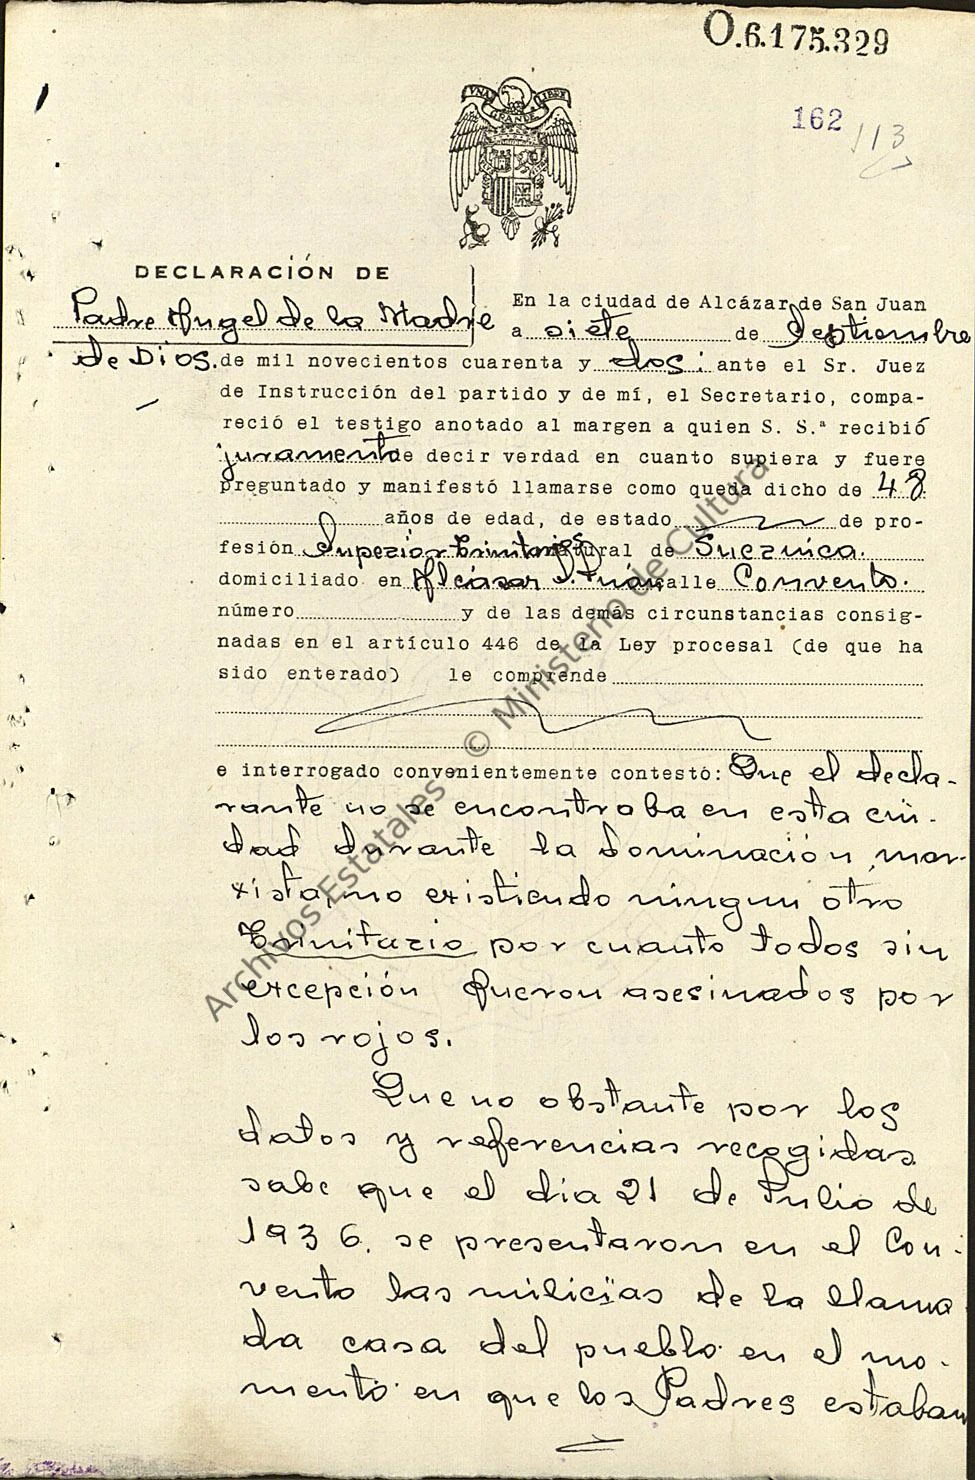 O.6.175.329
UNA GRANDE LIBRE
162
113
DECLARACIÓN DE
Padre Angel de la Madre
de Dios.
En la ciudad de Alcázar de San Juan
a siete de Septiembre
de mil novecientos cuarenta y dos; ante el Sr. Juez
de Instrucción del partido y de mí, el Secretario, compa-
reció el testigo anotado al margen a quien S. S.ª recibió
juramento de decir verdad en cuanto supiera y fuere
preguntado y manifestó llamarse como queda dicho de 48
años de edad, de estado de pro-
fesión Superior Trinitarios natural de
domiciliado en Alcásar S. Juan calle Convento.
número y de las demás circunstancias consig-
nadas en el artículo 446 de la Ley procesal (de que ha
sido enterado) le comprende
e interrogado convenientemente contestó: Que el decla-
rante no se encontraba en esta ciu-
dad durante la dominación mar-
xista, no existiendo ningun otro
Trinitario por cuanto todos sin
excepción fueron asesinados por
los rojos.
Que no obstante por los
datos y referencias recogidas
sabe que el dia 21 de Julio de
1936. se presentaron en el Con-
vento las milicias de la llama
da casa del pueblo en el mo-
mento en que los Padres estaban
Archivos Estatales © Ministerio de Cultura